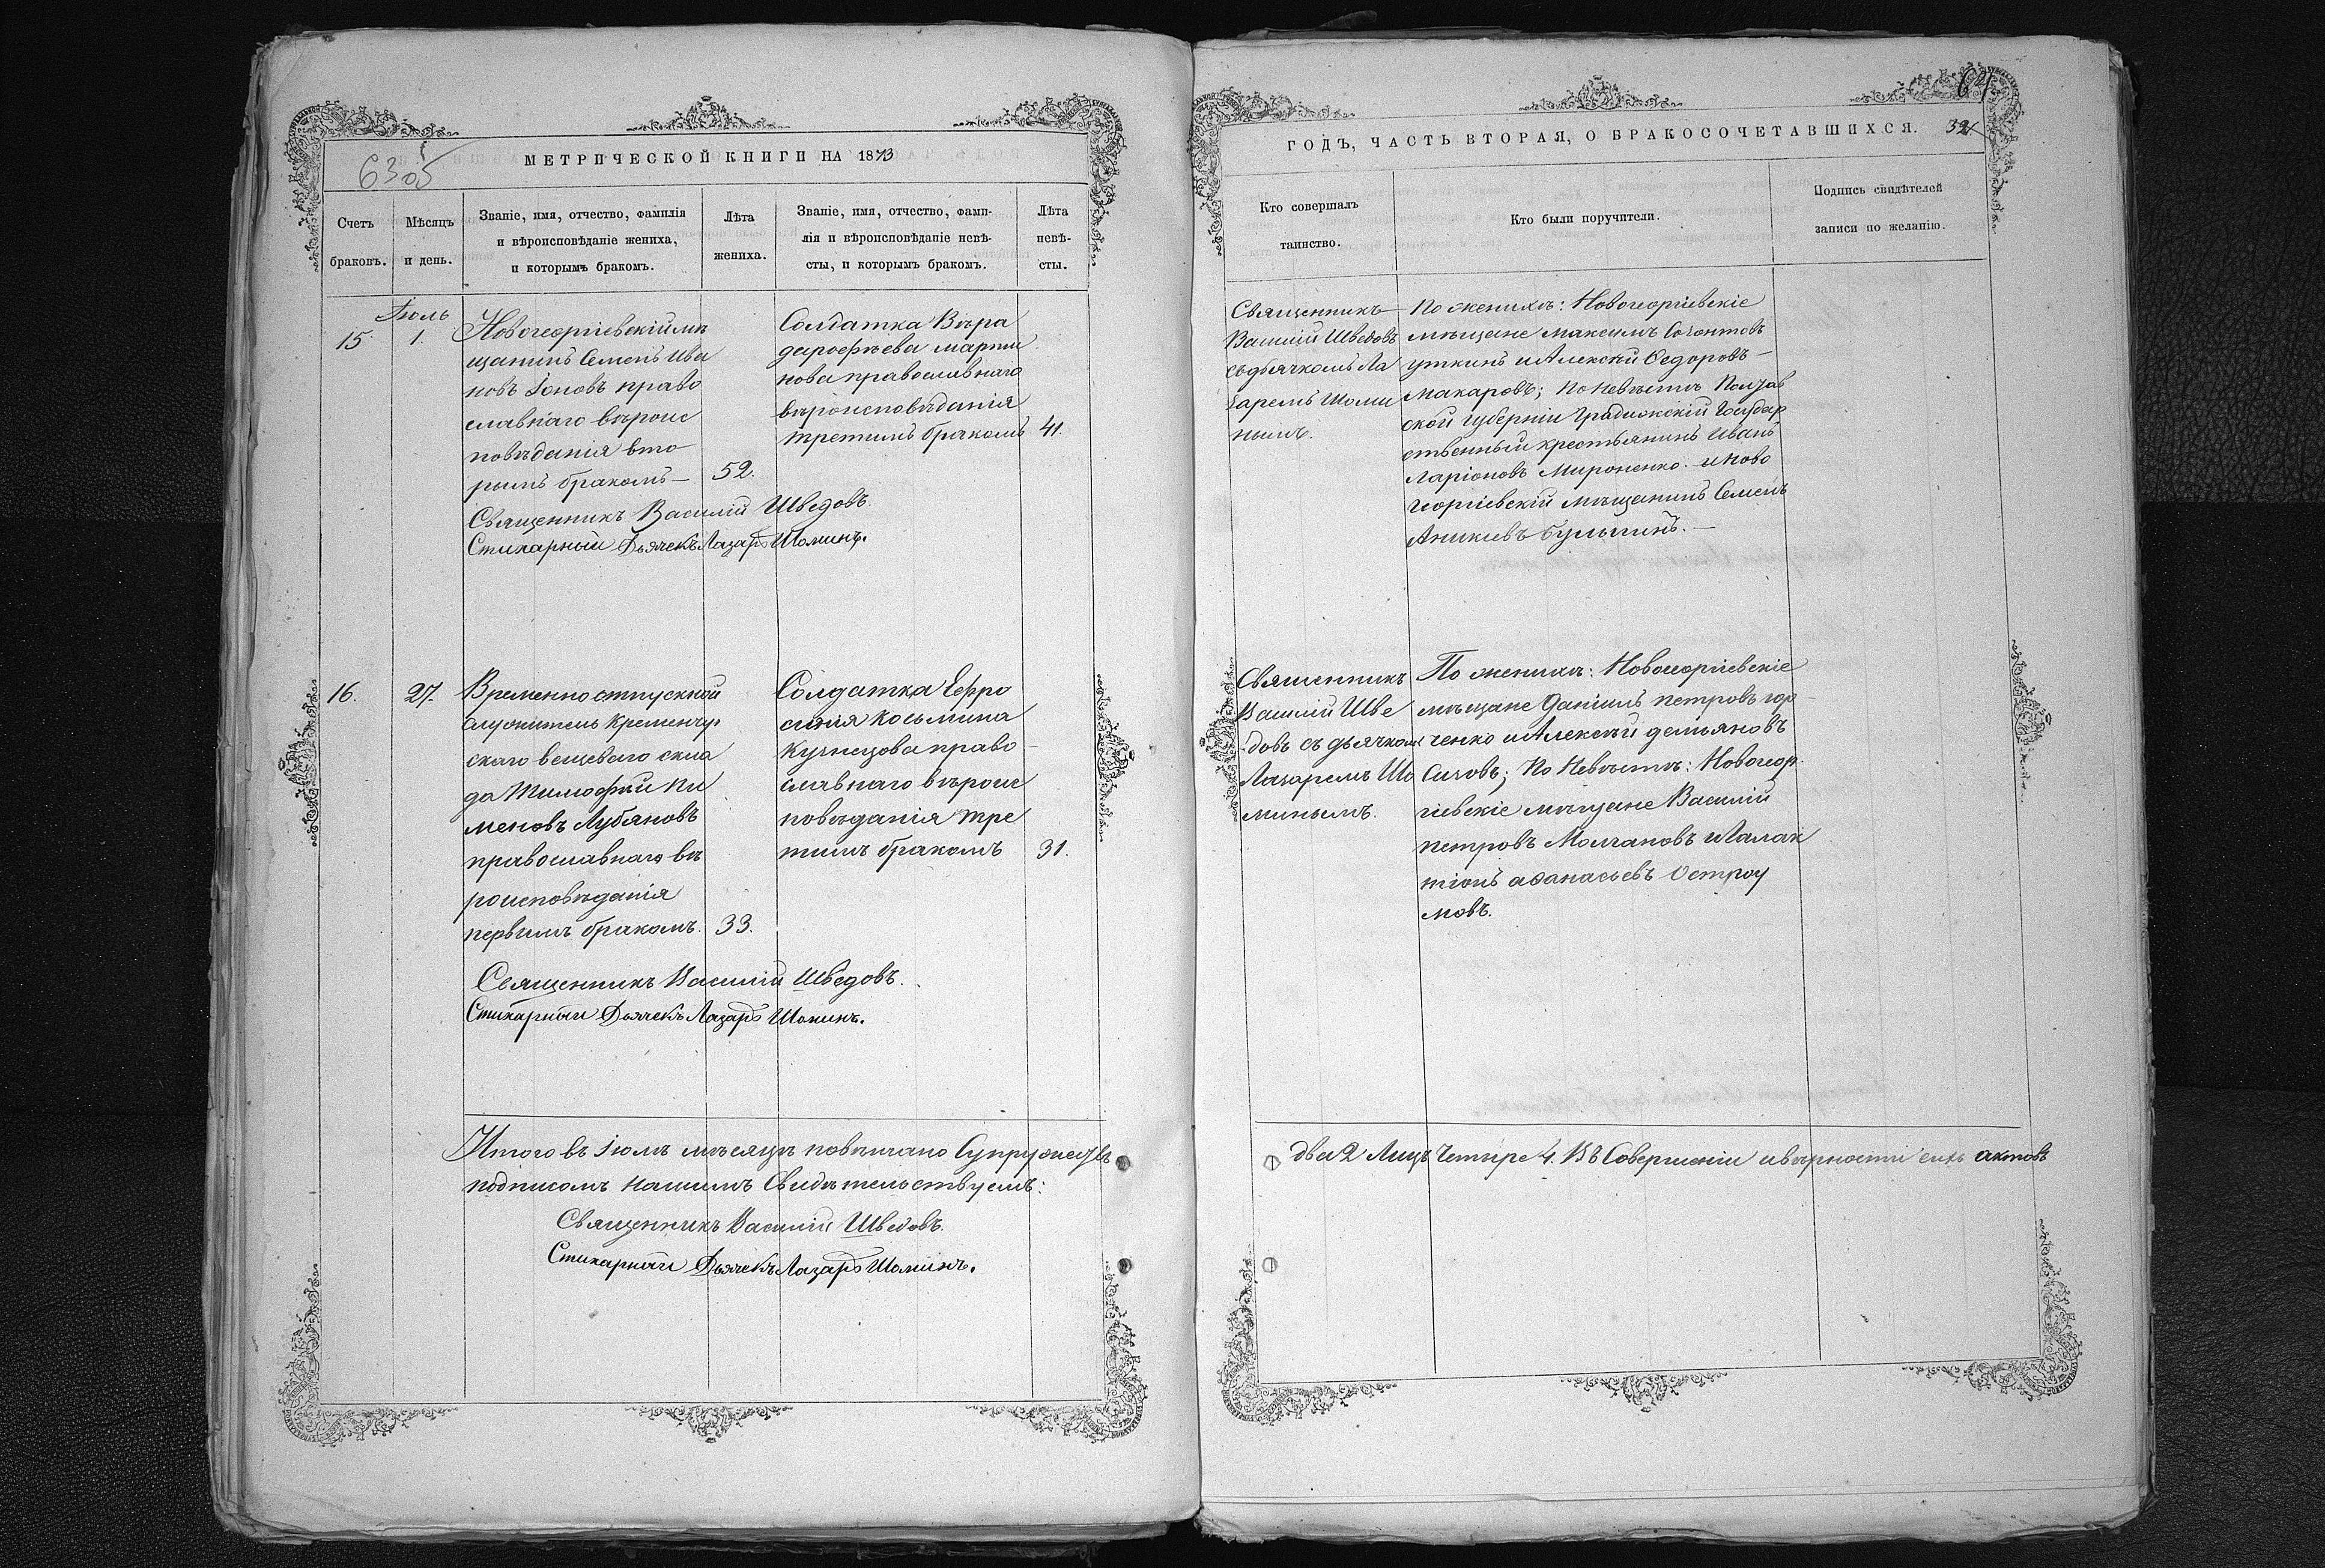 МЕТРИЧЕСКОЙ КНИГИ НА 1873
6305
Счетъ браковъ.
Мѣсяцъ и день.
Званіе, имя, отчество, фамилія
и вѣроисповѣданіе жениха,
и которымъ бракомъ.
Лѣта
жениха.
Званіе, имя, отчество, фами-
лія и вѣроисповѣданіе невѣ-
сты, и которымъ бракомъ.
Лѣта
невѣ-
сты.
Іюль
15. 1.
Новогеоргіевскій мѣ
щанинъ Семенъ Ива
новъ Іоновъ право
славнаго вѣроис
повѣданія вто
рымъ бракомъ — 52.
Солдатка Вѣра
дарофѣева марти
нова православнаго
вѣроисповѣданія
третимъ бракомъ 41.
Священникъ Василій Шведовъ.
Стихарный Дьячекъ Лазарь Шоминъ.
16. 27.
Временно отпускной
служитель Кременчу
скаго вещеваго скла
да Тимофѣй Пи
меновъ Лубяновъ
православнаго вѣ
роисповѣданія
первымъ бракомъ. 33.
Солдатка Ефро
синія Косьмина
Кузнецова право-
славнаго вѣроис
повѣданія тре
тимъ бракомъ 31.
Священникъ Василій Шведовъ.
Стихарный Дьячекъ Лазарь Шоминъ.
Итого въ Іюлѣ мѣсяцѣ повѣнчано Супружествъ
подписомъ нашимъ Свидѣтельствуемъ:
Священникъ Василій Шведовъ.
Стихарный Дьячекъ Лазарь Шоминъ.
ГОДЪ, ЧАСТЬ ВТОРАЯ, О БРАКОСОЧЕТАВШИХСЯ.
Кто совершалъ
таинство.
Кто были поручители.
Подпись свидѣтелей
записи по желанію.
Священникъ
Василій Шведовъ
съ дьячкомъ Ла
заремъ Шоми
нымъ.
По женихѣ: Новогеоргіевскіе
мѣщане Максимъ
уткинъ и Алексѣй Ѳедоровъ —
Макаровъ; По Невѣстѣ Полтав
ской губерніи Градижскій Государ
ственный крестьянинъ Иванъ
Ларіоновъ Мироненко. и Ново
георгіевскій мѣщанинъ Семенъ
Аникіевъ Булыгинъ. —
Священникъ
Василій Шве
довъ съ дьячкомъ
Лазаремъ Шо
минымъ.
По женихѣ: Новогеоргіевскіе
мѣщане Даніилъ петровъ гор-
ченко и Алексѣй демьяновъ
Сизовъ; По Невѣстѣ: Новогеор
гіевскіе мѣщане Василій
петровъ Молчановъ и Галак
тіонъ аѳанасьевъ Остроу
мовъ.
два 2 Лицъ Четыре 4. Въ Совершеніи и вѣрности сихъ актовъ